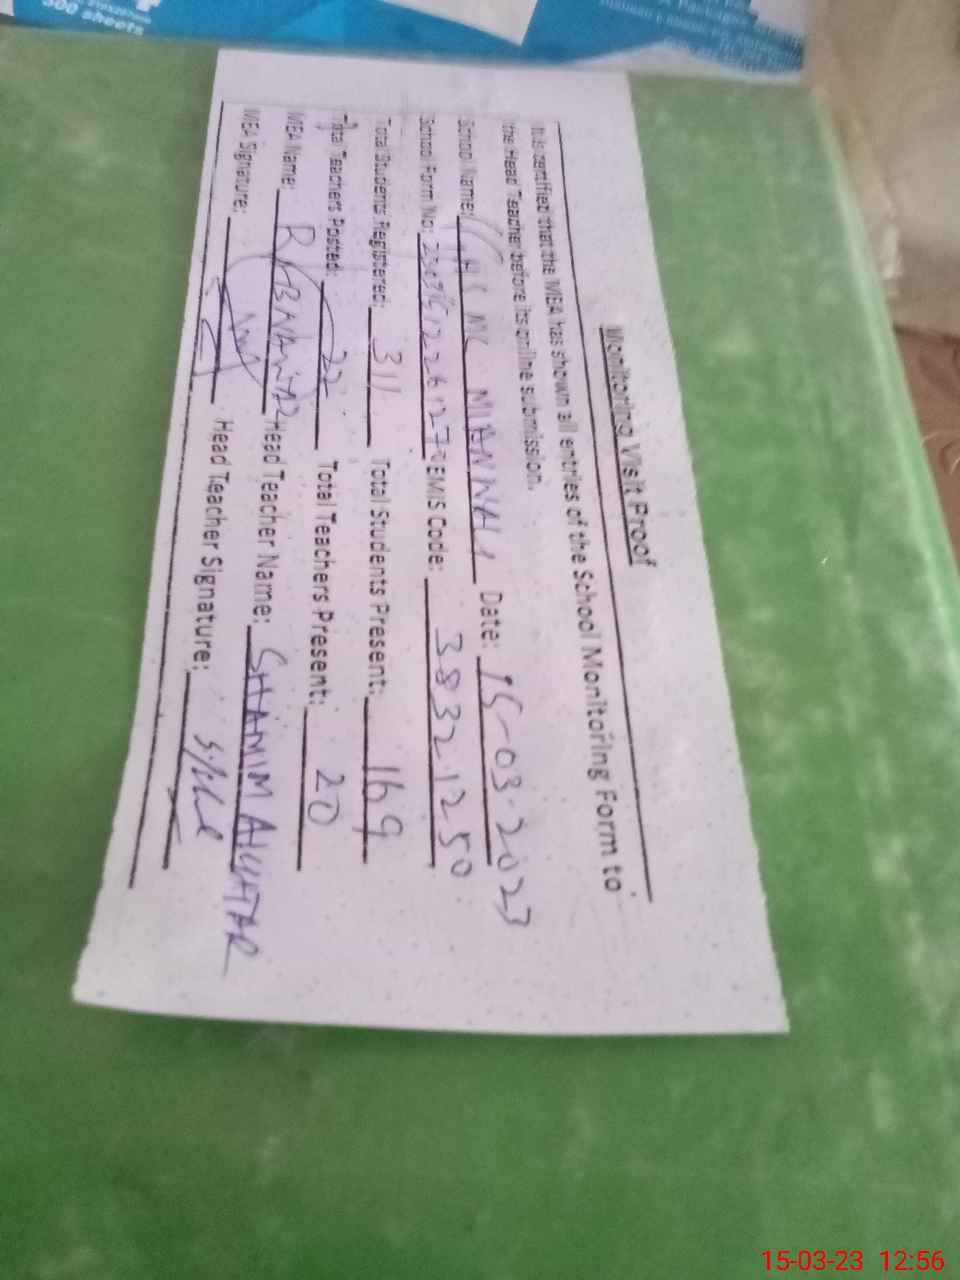 300 sheets
Monitoring Visit Proof
It is certified that the MEA has shown all entries of the School Monitoring Form to
the Head Teacher before its online submission.
School Name: MC Date: 15-03-2023
School Form No: EMIS Code: 38321250
Total Students Registered: 311 Total Students Present: 169
Total Teachers Posted: 22 Total Teachers Present: 20
MEA Name: Head Teacher Name: SHAMIM AKHTAR
MEA Signature: Head Teacher Signature:
15-03-23 12:56